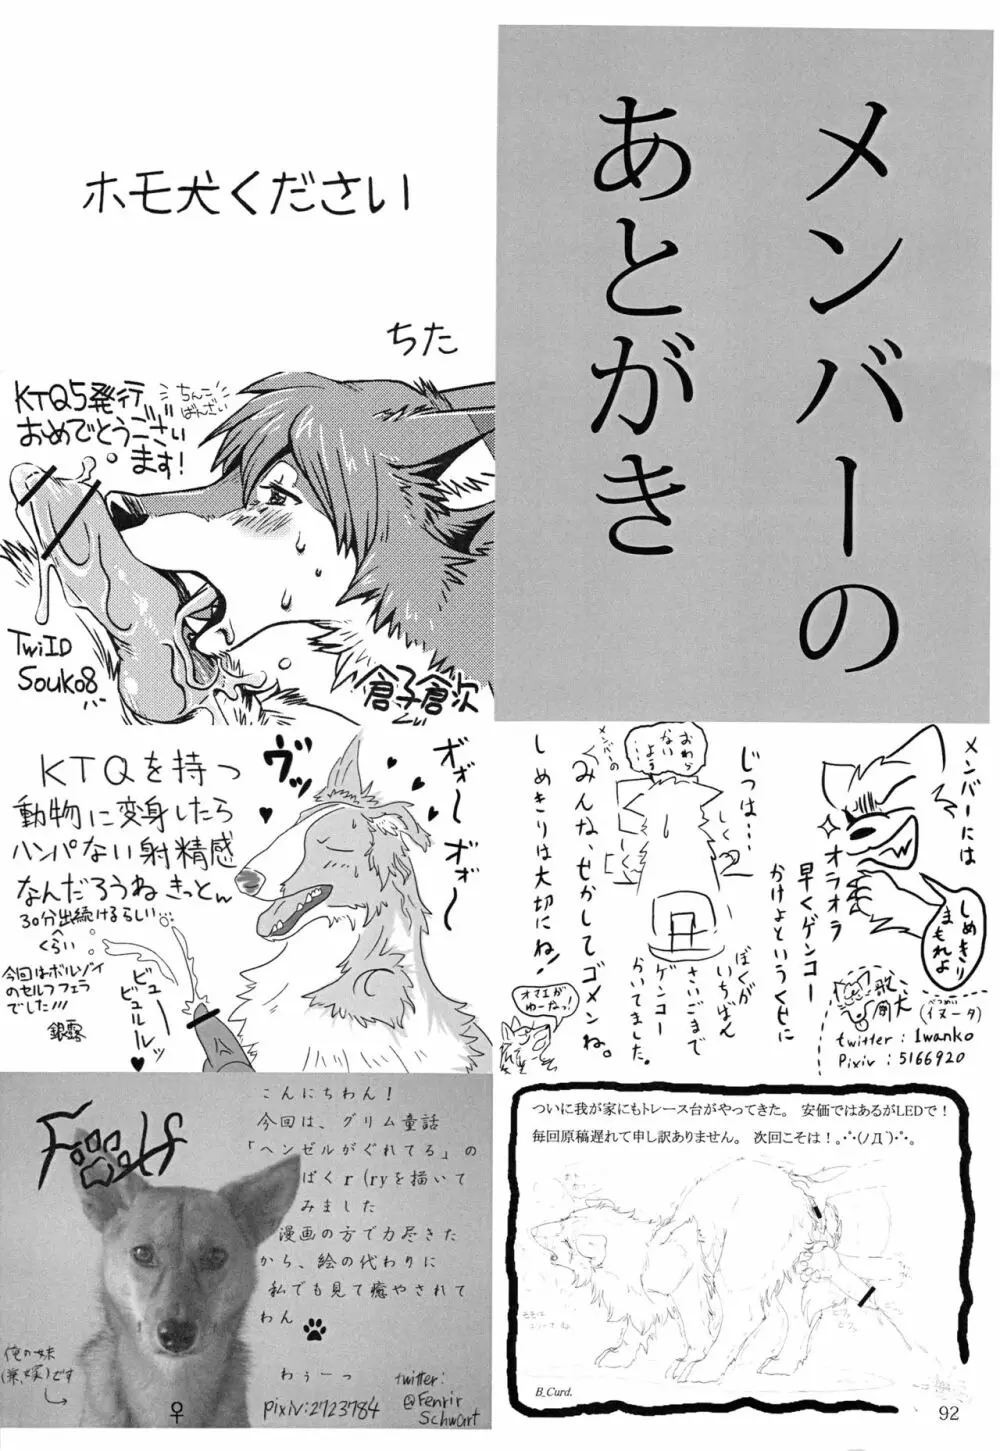 メンバーの
あとがき
ホモ犬ください
ちた
KTQ5発行
おめでとうござい
ます!
ちんこ
ばんざい
TwiID
Souko8
倉子倉次
KTQを持つ
動物に変身したら
ハンパない射精感
なんだろうね きっとん
30分出続けるらしい
くらい
今回はボルゾイ
のセルフフェラ
でした!!!
銀露
ヴッ
オォ〜
オォ〜
ビュー
ビュルルッ
メンバーには
しめきり
まもれよ
オラオラ
早くゲンコー
かけよというくせに
じつは…
ぼくが
いちばん
さいごまで
ゲンコー
かいてました。
おわら
ない
よぅ
しく
メンバーの
みんな、せかしてゴメンね。
しめきりは大切にね!
オマエが
ゆーなっ!
(イヌータ)
twitter : 1wanko
Pixiv : 5166920
Folf
こんにちわん!
今回は、グリム童話
「ヘンゼルがぐれてる」の
ぱくr(ryを描いて
みました
漫画の方で力尽きた
から、絵の代わりに
私でも見て癒やされて
わん
わぅーっ
俺の妹
(兼、嫁)です
♀
pixiv:2723784
twitter:
@Fenrir
Schwart
ついに我が家にもトレース台がやってきた。 安価ではあるがLEDで!
毎回原稿遅れて申し訳ありません。 次回こそは!。･ﾟ･(ノД`)･ﾟ･。
B_Curd.
92